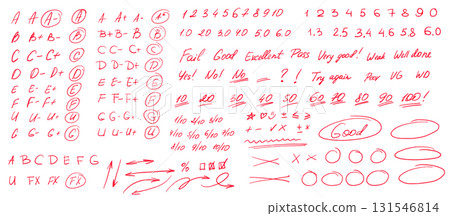 A A- A- A+ A
B B- B+ B
C C- C+ C
D D- D+ D
E E- E+ E
F F- F+ F
G G- G+ G
U U- U+ U
A B C D E F G
U FX FX
A A- A+ A+
B+ B- B
C C- C+ C
D D- D+ D
E E- E+ E
F F- F+ F
G G- G+ G
U U- U+ U
1 2 3 4 5 6 7 8 9 10
1.0 2.0 3.0 4.0 5.0 6.0
Fail Good Excellent Pass
Yes! No! No ? !
10 20 30 40 50
1 2 3 4 5 6 7 8 9 0
1.3 2.5 3.8 4.5 5.8 6.0
Very good! Weak Well done
Try again Poor VG WD
60 70 80 90 100!
1/10 2/10 3/10 4/10
5/10 6/10 7/10 8/10
9/10 10/10
%
+ - √ × ± =
Good
131546814